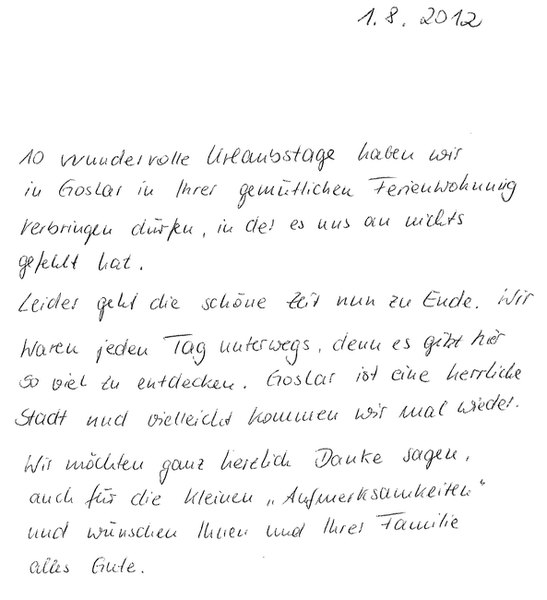 1.8.2012
10 wundervolle Urlaubstage haben wir
in Goslar in Ihrer gemütlichen Ferienwohnung
verbringen dürfen, in der es uns an nichts
gefehlt hat.
Leider geht die schöne Zeit nun zu Ende. Wir
waren jeden Tag unterwegs, denn es gibt hier
so viel zu entdecken. Goslar ist eine herrliche
Stadt und vielleicht kommen wir mal wieder.
Wir möchten ganz herzlich Danke sagen,
auch für die kleinen „Aufmerksamkeiten"
und wünschen Ihnen und Ihrer Familie
alles Gute.